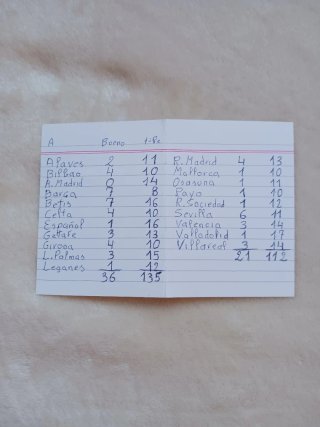 A Bueno
Alaves 2 11
Bilbao 4 10
A. Madrid 0 14
Barça 7 8
Betis 7 16
Celta 4 10
Español 1 16
Getafe 3 13
Girona 4 10
L. Palmas 3 15
Leganes 1 12
36 135
R. Madrid 4 13
Mallorca 1 10
Osasuna 1 11
Rayo 1 10
R. Sociedad 1 12
Sevilla 6 11
Valencia 3 14
Valladolid 1 17
Villareal 3 14
21 112